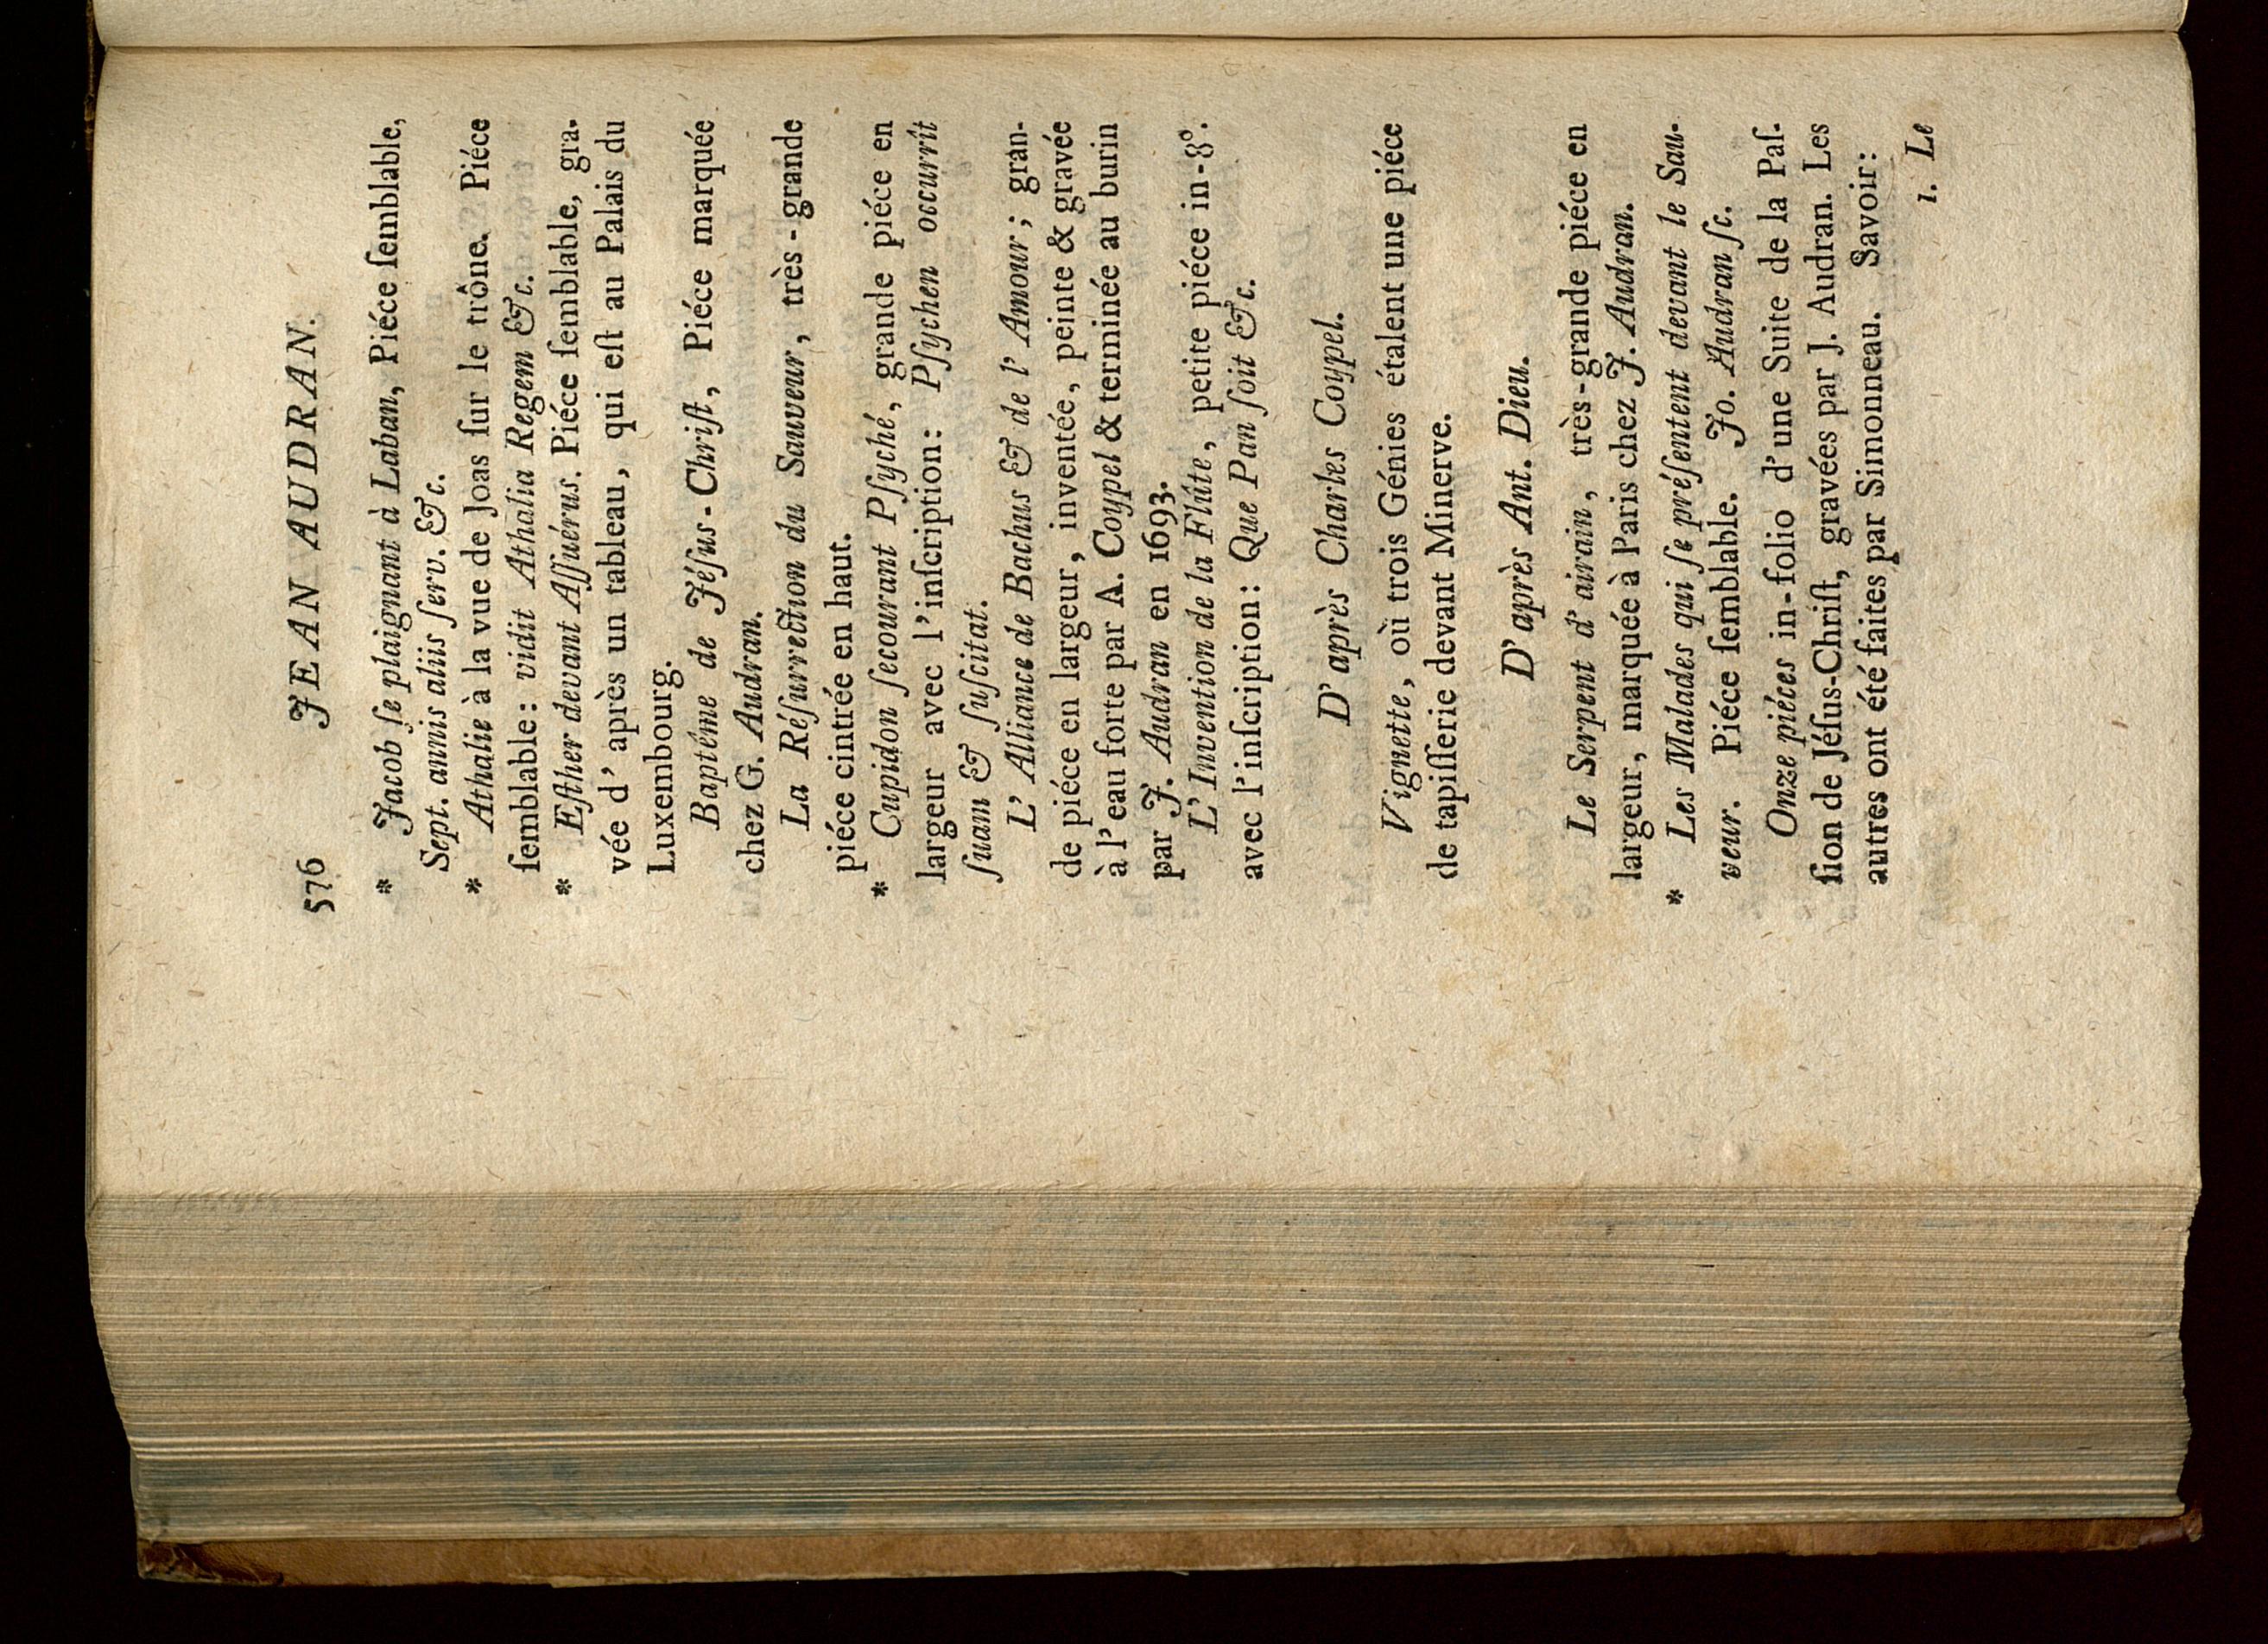 576 JEAN AUDRAN.
* Jacob ſe plaignant à Laban, Piéce ſemblable,
Sept. annis aliis ſerv. &c.
* Athalie à la vue de Joas ſur le trône. Piéce
ſemblable: vidit Athalia Regem &c.
* Eſther devant Aſſuérus. Piéce ſemblable, gra-
vée d'après un tableau, qui eſt au Palais du
Luxembourg.
Baptême de Jéſus-Chriſt, Piéce marquée
chez G. Audran.
La Réſurrection du Sauveur, très-grande
piéce cintrée en haut.
* Cupidon ſecourant Pſyché, grande piéce en
largeur avec l'inſcription: Pſychen occurrit
ſuam & ſuſcitat.
L'Alliance de Bachus & de l'Amour; gran-
de piéce en largeur, inventée, peinte & gravée
à l'eau forte par A. Coypel & terminée au burin
par J. Audran en 1693.
L'Invention de la Flûte, petite piéce in-8°.
avec l'inſcription: Que Pan ſoit &c.
D'après Charles Coypel.
Vignette, où trois Génies étalent une piéce
de tapiſſerie devant Minerve.
D'après Ant. Dieu.
Le Serpent d'airain, très-grande piéce en
largeur, marquée à Paris chez J. Audran.
* Les Malades qui ſe préſentent devant le Sau-
veur. Piéce ſemblable. Jo. Audran ſc.
Onze piéces in-folio d'une Suite de la Paſ-
ſion de Jéſus-Chriſt, gravées par J. Audran. Les
autres ont été faites par Simonneau. Savoir:
1. Le